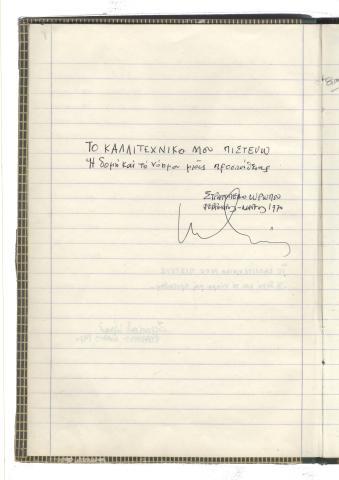 ΤΟ ΚΑΛΛΙΤΕΧΝΙΚΟ ΜΟΥ ΠΙΣΤΕΥΩ
Ἡ δομή καί τό νόημα μιᾶς προσπάθειας
ΣΤΡΑΤΟΠΕΔΟ ΩΡΩΠΟΥ
1970